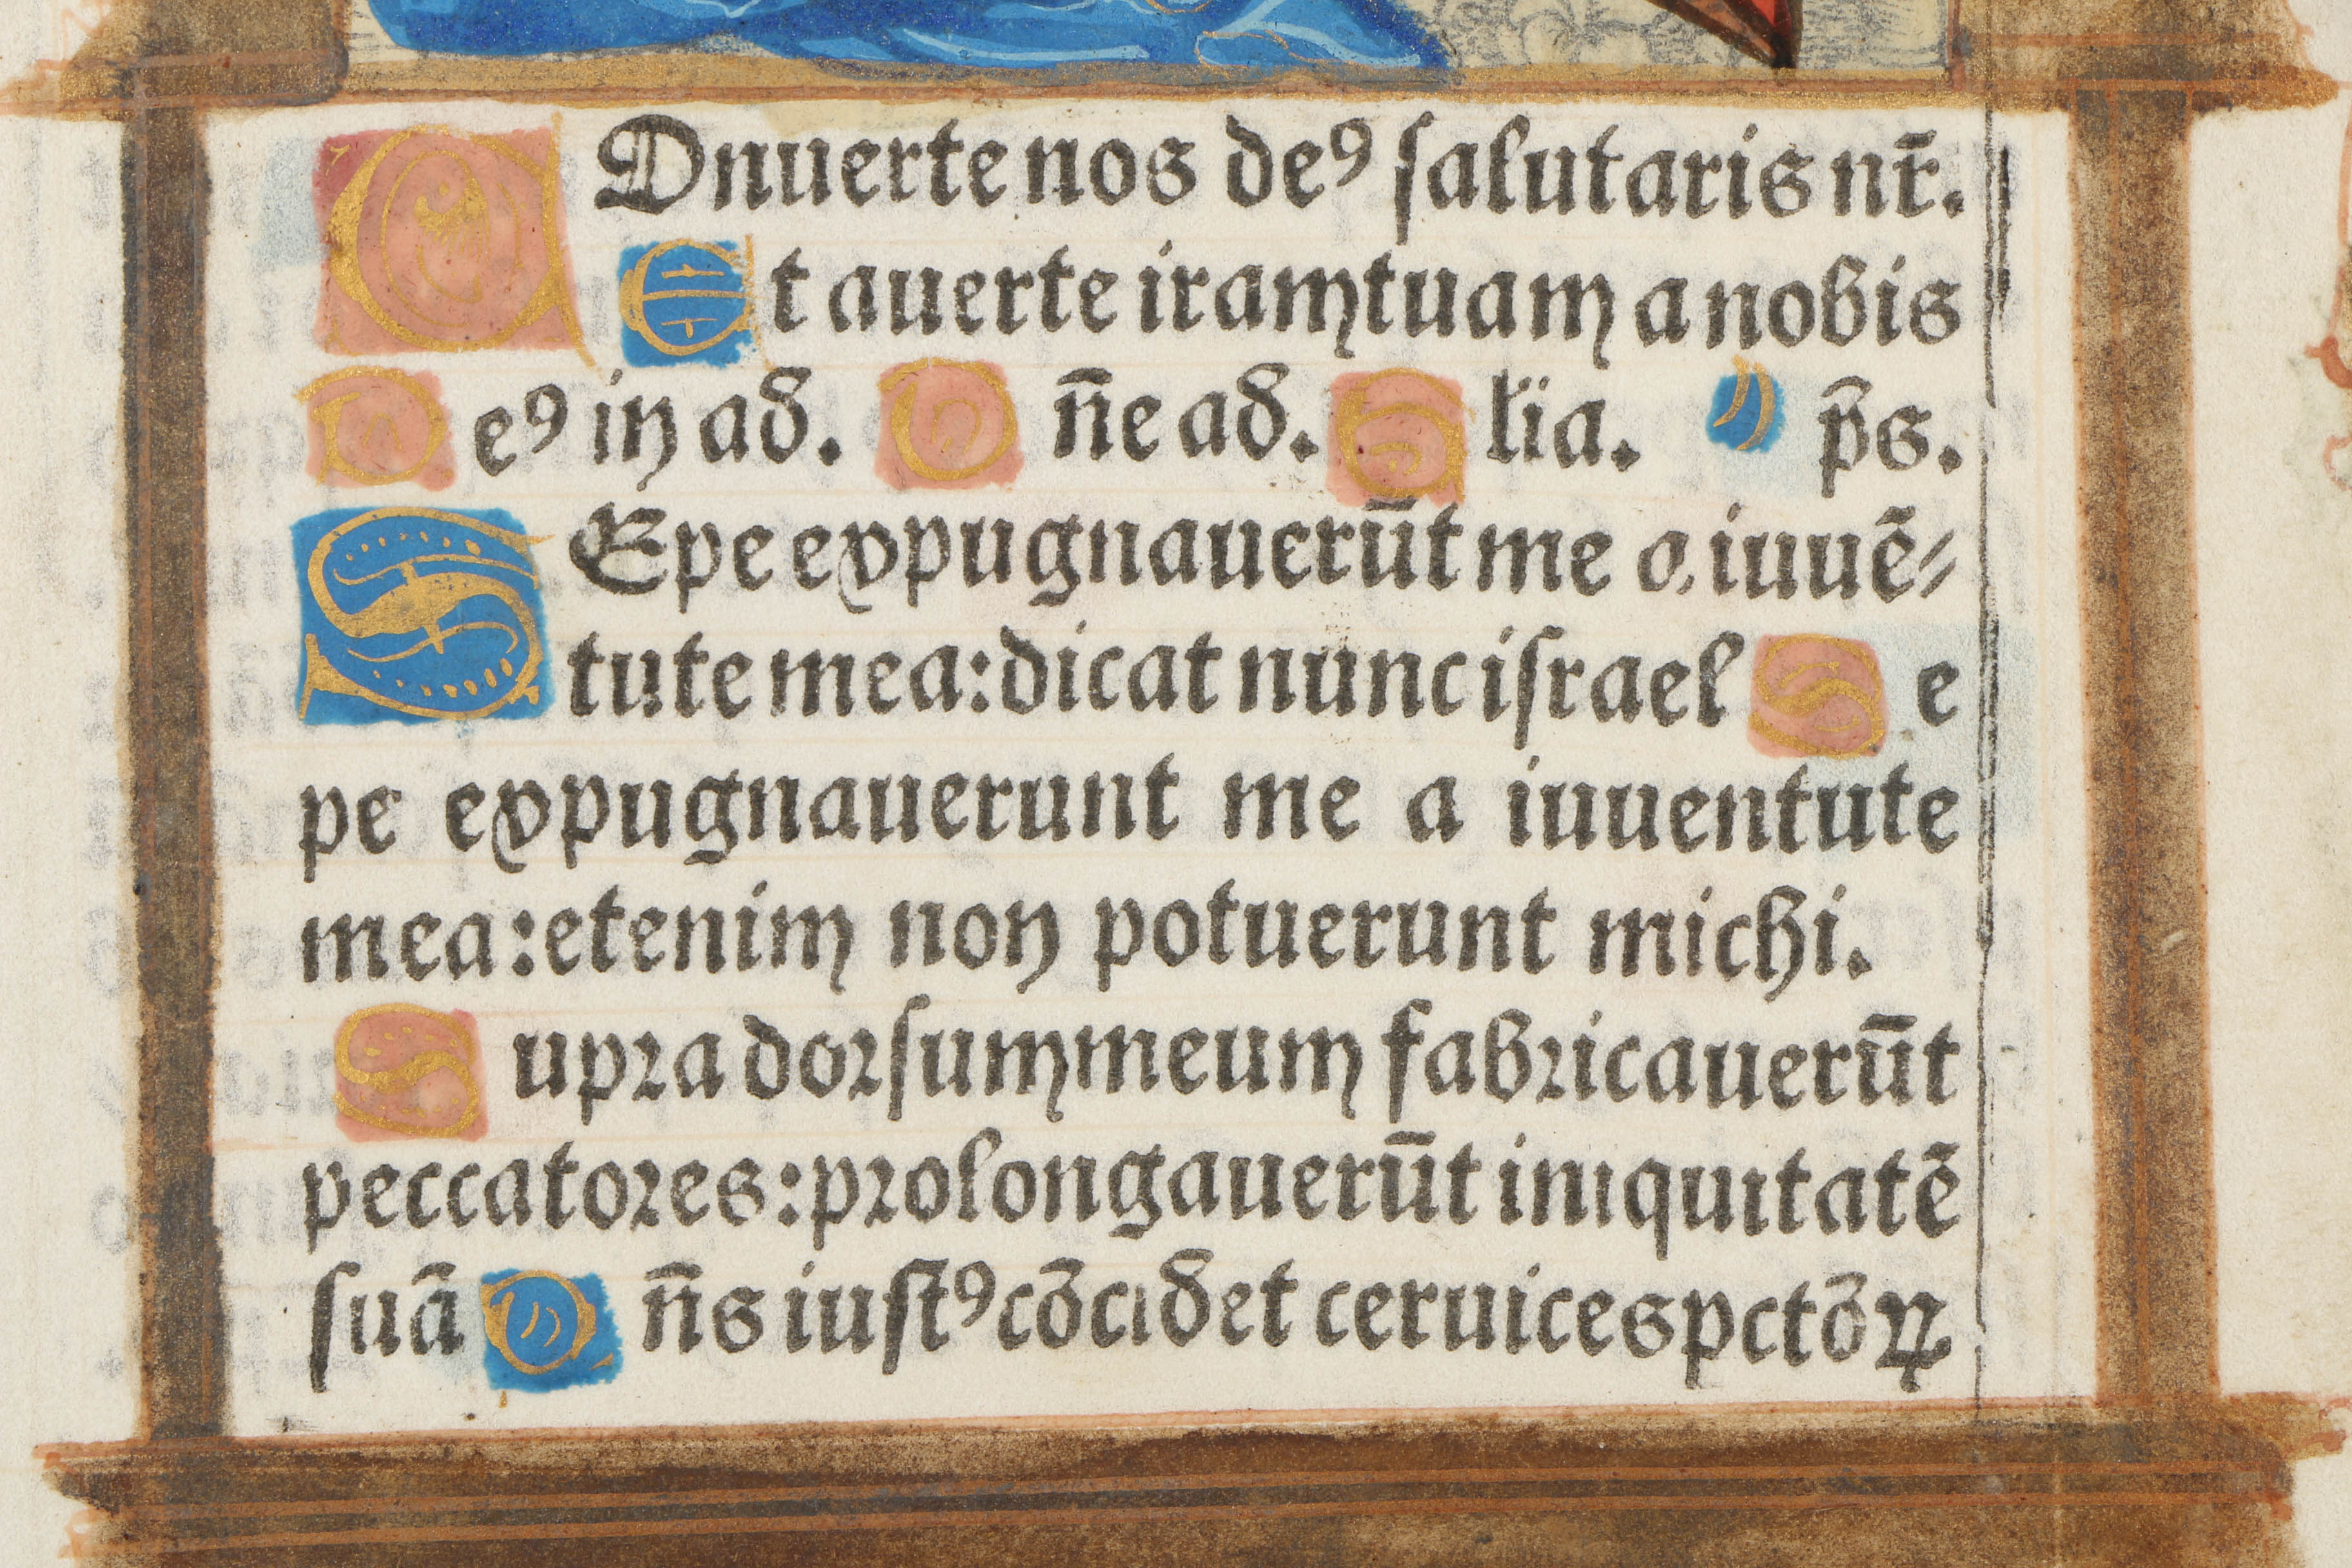 COnuerte nos deꝰ ſalutaris nr̄.
Et auerte iram tuam a nobis
Deꝰ in ad̄. Dn̄e ad̄. Gl̄ia. p̄s.
SEpe expugnauerūt me a iuuē⸗
tute mea: dicat nunc iſrael Se
pe expugnauerunt me a iuuentute
mea: etenim non potuerunt michi.
Supra dorſum meum fabricauerūt
peccatores: prolongauerūt iniquitatē
ſuā Dn̄s iuſtꝰ cōcid̄et ceruices pctōꝝ